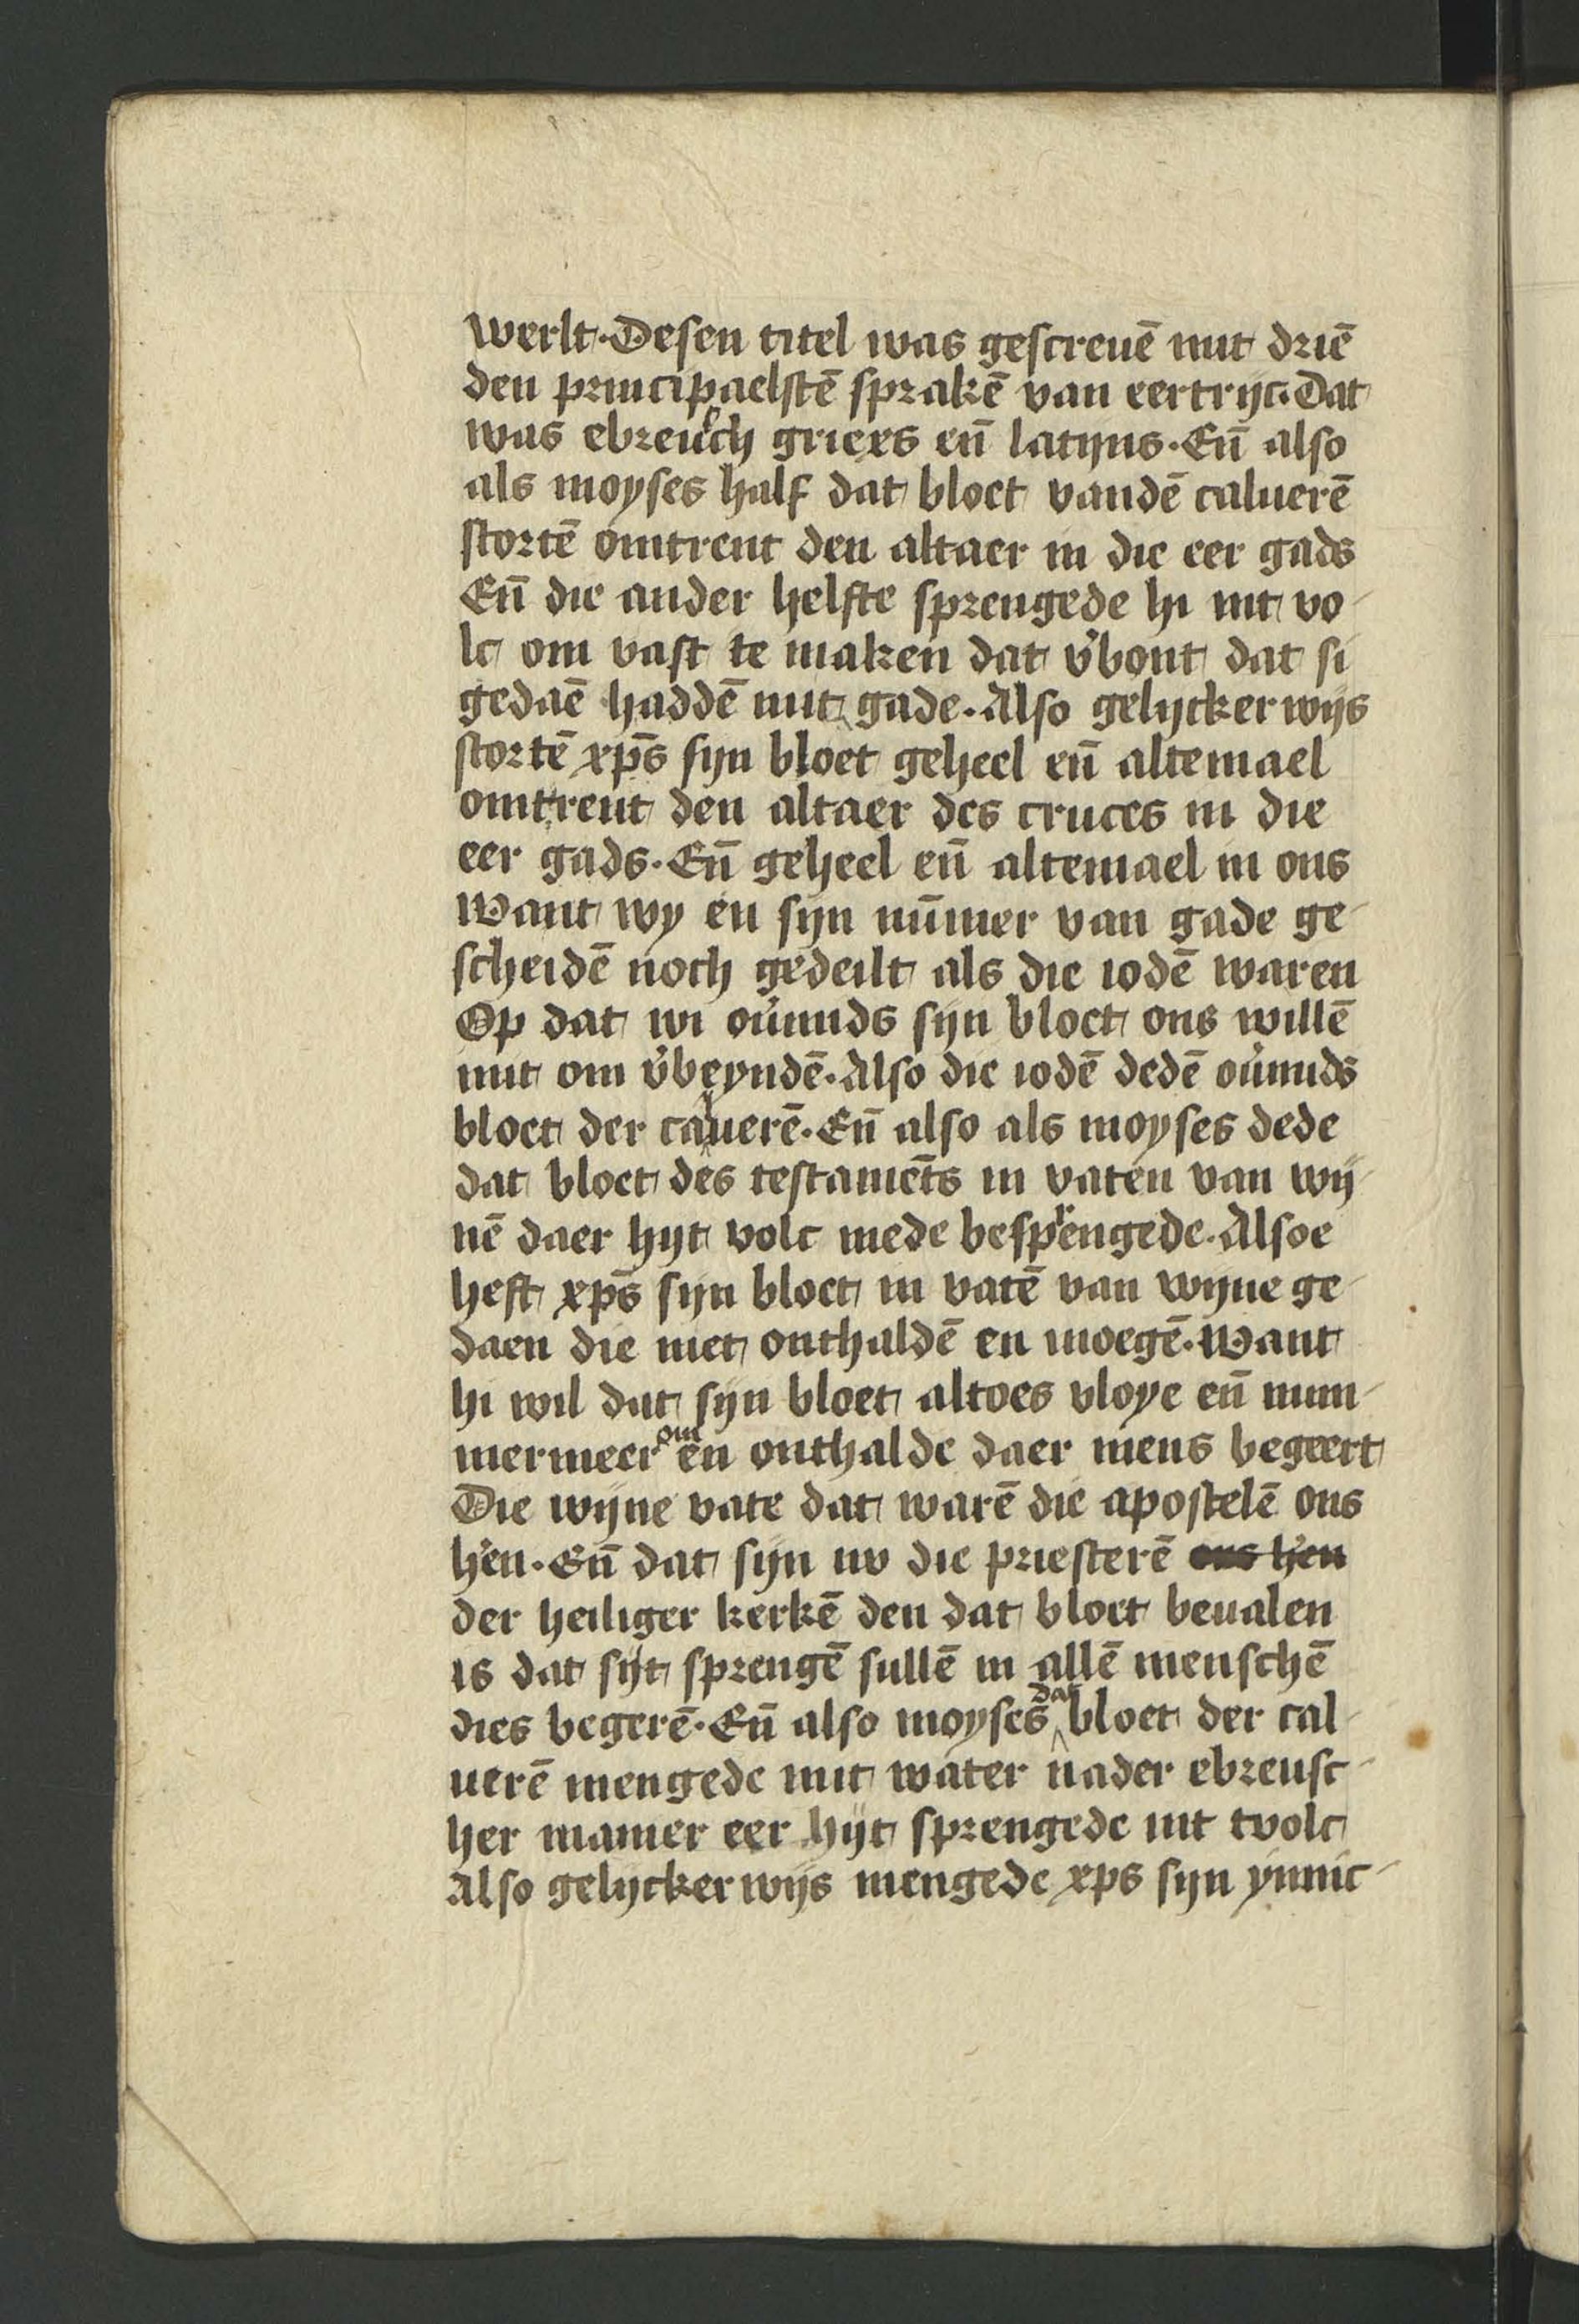 werlt. Desen titel was gescreuē mit driē
den principaelstē sprakē van eertrijc. Dat
was ebreusch griexs eñ latijns. Eñ also
als moyses half dat bloet vandē caluerē
stortē omtrent den altaer in die eer gads
Eñ die ander helfte sprengede hi int vo-
lc om vast te maken dat v'bont dat si
gedaē haddē mit gade. Also gelijckerwijs
stortē xp̄s sijn bloet geheel eñ altemael
omtrent den altaer des cruces in die
eer gads. Eñ geheel eñ altemael in ons
Want wy en sijn nūmer van gade ge-
scheidē noch gedeilt als die iodē waren
Op dat wi ou'mids sijn bloet ons willē
mit om v'beyndē. Also die iodē dedē ou'mids
bloet der caluerē. Eñ also als moyses dede
dat bloet des testamēts in vaten van wij-
nē daer hijt volc mede besprengede. Alsoe
heft xp̄s sijn bloet in vatē van wijne ge-
daen die niet onthaldē en moegē. Want
hi wil dat sijn bloet altoes vloye eñ num-
mermeer om en onthalde daer mens begeert
Die wijne vate dat warē die apostelē ons
h'en. Eñ dat sijn nv die priesterē ons h'en
der heiliger kerkē den dat bloet beualen
is dat sijt sprengē sullē in allē menschē
dies begerē. Eñ also moyses dat bloet der cal-
uerē mengede mit water nader ebreusc-
her manier eer hijt sprengede int tvolc
Also gelijckerwijs mengede xps sijn ynnic-